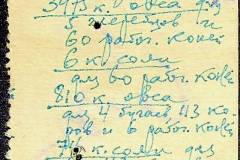 3973 к. овса для
5 жеребцов и
60 работ. коней
6 к. соли
для 60 работ. коней
810 к. овса
для 4 быков 43 ко
ров и 6 работ. коней
к. соли для